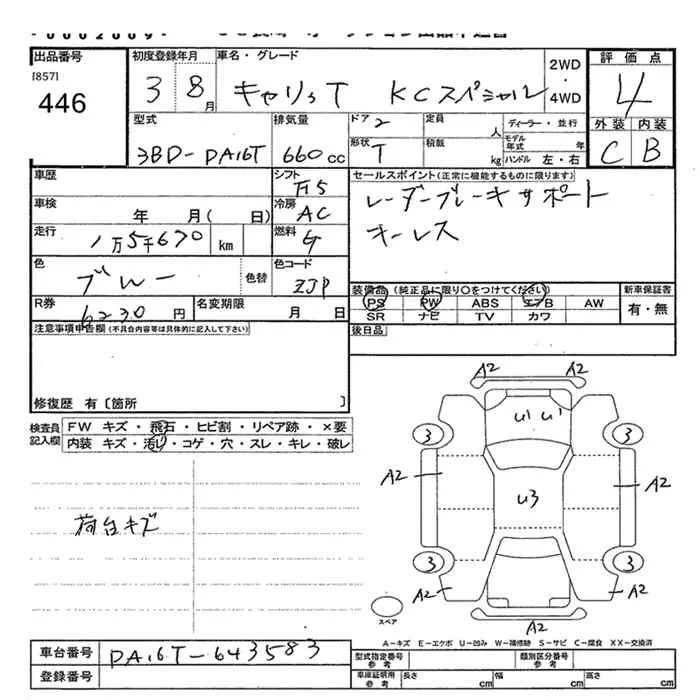 出品番号
[857]
446
初度登録年月
3 8月
車名・グレード
キャリィT KCスペシャル
2WD
・
4WD
評価点
4
外装 内装
C B
型式
3BD-DA16T
排気量
660cc
ドア 2
形状 T
定員 人
積載 kg
ディーラー・並行
モデル年式 年
ハンドル 左・右
車歴
シフト F5
セールスポイント(正常に機能するものに限ります)
レーダーブレーキサポート
キーレス
車検 年 月( 日)
冷房 AC
走行 1万5千670 km
燃料 G
色 ブルー 色替
色コード ZJP
装備品 (純正品に限り○をつけてください)
PS PW ABS エアB AW
SR ナビ TV カワ
新車保証書
有・無
R券 6230円
名変期限 月 日
後日品
注意事項申告欄(不具合内容等は具体的に記入して下さい)
修復歴 有〔箇所 〕
検査員記入欄
FW キズ・飛石・ヒビ割・リペア跡・×要
内装 キズ・汚れ・コゲ・穴・スレ・キレ・破レ
荷台キズ
A2 A2
U1 U1
3 3
A2 U3 A2
3 3
A2 A2
A2
スペア
A-キズ E-エクボ U-凹み W-補修跡 S-サビ C-腐食 XX-交換済
車台番号 DA16T-643583
登録番号
型式指定番号 参考
類別区分番号 参考
車庫証明用 参考 長さ cm 幅 cm 高さ cm